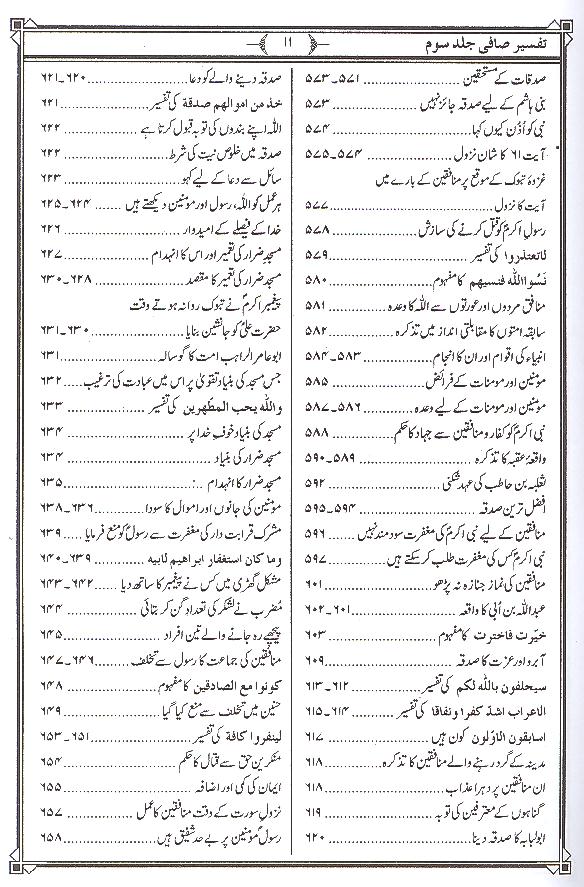 تفسیر صافی جلد سوم
۱۱
صدقات کے مستحقین ۵۷۱۔۵۷۳
بنی ہاشم کے لیے صدقہ جائز نہیں ۵۷۳
نبی کو اُذن کیوں کہا ۵۷۴
آیت ۶۱ کا شان نزول ۵۷۴۔۵۷۵
غزوۂ تبوک کے موقع پر منافقین کے بارے میں
آیت کا نزول ۵۷۷
رسولِ اکرمؐ کو قتل کرنے کی سازش ۵۷۸
لاتعتذروا کی تفسیر ۵۷۹
نَسُوا اللّٰہ فنسیھم کا مفہوم ۵۸۰
منافق مردوں اور عورتوں سے اللہ کا وعدہ ۵۸۱
سابقہ امتوں کا مقابلتی انداز میں تذکرہ ۵۸۲
انبیاء کی اقوام اور ان کا انجام ۵۸۳۔۵۸۴
مؤمنین اور مومنات کے فرائض ۵۸۵
مؤمنین اور مومنات کے لیے وعدہ ۵۸۶۔۵۸۷
نبی اکرمؐ کو کفار و منافقین سے جہاد کا حکم ۵۸۸
واقعۂ عقبہ کا تذکرہ ۵۸۹۔۵۹۰
ثعلبہ بن حاطب کی عہد شکنی ۵۹۲
افضل ترین صدقہ ۵۹۴۔۵۹۵
منافقین کے لیے نبی اکرمؐ کی مغفرت سود مند نہیں ۵۹۶
نبی اکرمؐ کس کی مغفرت طلب کر سکتے ہیں ۵۹۷
منافقین کی نماز جنازہ نہ پڑھو ۶۰۱
عبداللہ بن اُبی کا واقعہ ۶۰۱۔۶۰۲
خیّرت فاخترت کا مفہوم ۶۰۳
آبرو اور عزت کا صدقہ ۶۰۹
سیحلفون باللّٰہ لکم کی تفسیر ۶۱۲۔۶۱۳
الاعراب اشدّ کفرا ونفاقا کی تفسیر ۶۱۴۔۶۱۵
السابقون الاوّلون کون ہیں ۶۱۷
مدینہ کے گرد رہنے والے منافقین کا تذکرہ ۶۱۸
ان منافقین پر دہرا عذاب ۶۱۸
گناہوں کے معترفین کی توبہ ۶۱۹
ابولبابہ کا صدقہ دینا ۶۲۰
صدقہ دینے والے کو دعا ۶۲۰۔۶۲۱
خذ من اموالھم صدقة کی تفسیر ۶۲۱
اللہ اپنے بندوں کی توبہ قبول کرتا ہے ۶۲۲
صدقہ میں خلوص نیت کی شرط ۶۲۲
سائل سے دعا کے لیے کہو ۶۲۳
ہر عمل کو اللہ، رسول اور مومنین دیکھتے ہیں ۶۲۴۔۶۲۵
خدا کے فیصلے کے امیدوار ۶۲۶
مسجد ضرار کی تعمیر اور اس کا انہدام ۶۲۷
مسجد ضرار کی تعمیر کا مقصد ۶۲۸۔۶۳۰
پیغمبر اکرمؐ نے تبوک روانہ ہوتے وقت
حضرت علیؑ کو جانشین بنایا ۶۳۰۔۶۳۱
ابو عامر الراہب امت کا گوسالہ ۶۳۱
جس مسجد کی بنیاد تقویٰ پر اس میں عبادت کی ترغیب ۶۳۲
واللّٰہ یحب المطّھرین کی تفسیر ۶۳۳
مسجد کی بنیاد خوفِ خدا پر ۶۳۴
مسجد ضرار کی بنیاد ۶۳۴
مسجد ضرار کا انہدام ۶۳۵
مؤمنین کی جانوں اور اموال کا سودا ۶۳۶۔۶۳۸
مشرک قرابت دار کی مغفرت سے رسولؐ کو منع فرمایا ۶۳۹
وما کان استغفار ابراھیم لابیه ۶۳۹۔۶۴۰
مشکل گھڑی میں کس نے پیغمبر کا ساتھ دیا ۶۴۲۔۶۴۳
مُضرب نے لشکر کی تعداد گن کر بتائی ۶۴۴
پیچھے رہ جانے والے تین افراد ۶۴۵
منافقین کی جماعت کا رسول سے تخلف ۶۴۶۔۶۴۷
کونوا مع الصادقین کا مفہوم ۶۴۸
حنین میں تخلف سے منع کیا گیا ۶۴۹
لینفروا کافة کی تفسیر ۶۵۱۔۶۵۳
منکرینِ حق سے قتال کا حکم ۶۵۴
ایمان کی کمی اور اضافہ ۶۵۵
نزولِ سورت کے وقت منافقین کا عمل ۶۵۷
رسولؐ مؤمنین پر بے حد شفیق ہیں ۶۵۸